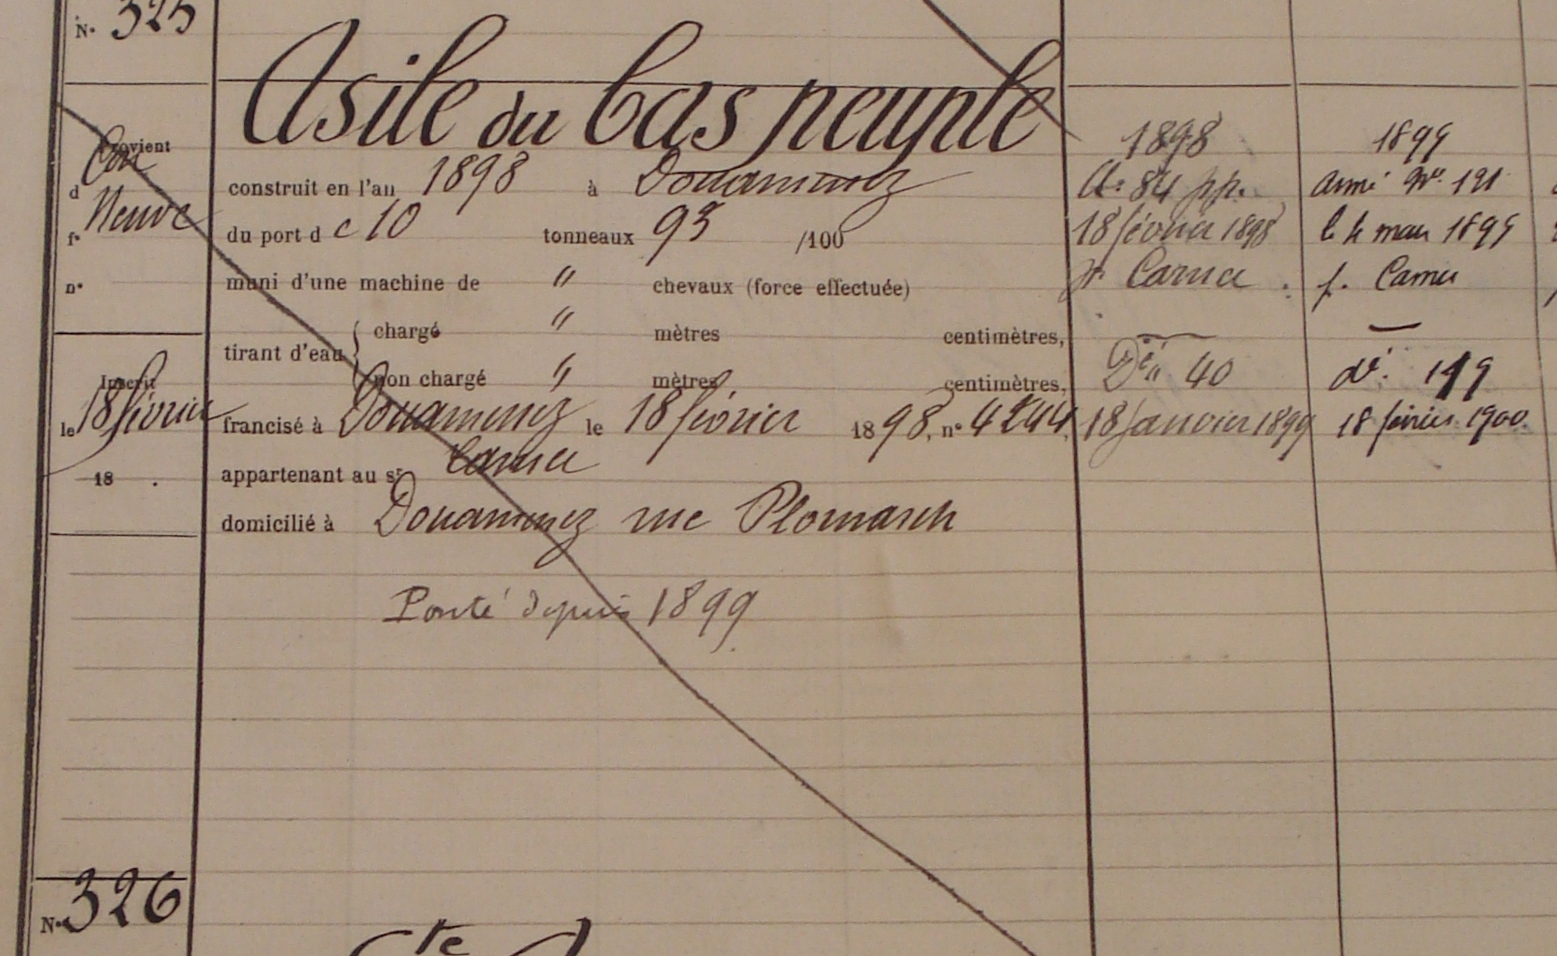 N° 325
Asile du bas peuple
Provient
d
Neuve
f°
n°
construit en l'an 1898 à Douarnenez
du port de 10 tonneaux 93 /100
muni d'une machine de " chevaux (force effectuée)
tirant d'eau
chargé " mètres centimètres,
non chargé " mètres centimètres,
Inscrit
le 18 février
18 .
francisé à Douarnenez le 18 février 1898, n° 4244
appartenant au sr
domicilié à Douarnenez rue Plomarch
Ponté depuis 1899
1898
A: 84 pp.
18 février 1898
Dé 40
18 Janvier 1899
1899
armé n° 191
le 4 mars 1899
dé. 119
18 février 1900.
N° 326